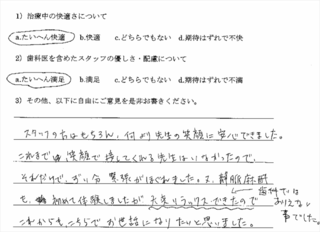 1) 治療中の快適さについて
a.たいへん快適 b.快適 c.どちらでもない d.期待はずれで不快
2) 歯科医を含めたスタッフの優しさ・配慮について
a.たいへん満足 b.満足 c.どちらでもない d.期待はずれで不満
3) その他、以下に自由にご意見を是非お書きください。
スタッフの方はもちろん、何より先生の笑顔に安心できました。
これまでは笑顔で接してくれる先生はいなかったので、
それだけで、ずい分緊張がほぐれました。又、静脈麻酔
も初めて体験しましたが大変リラックスできたので
←歯科では
ありえない
事でした。
これからも、こちらでお世話になりたいと思いました。